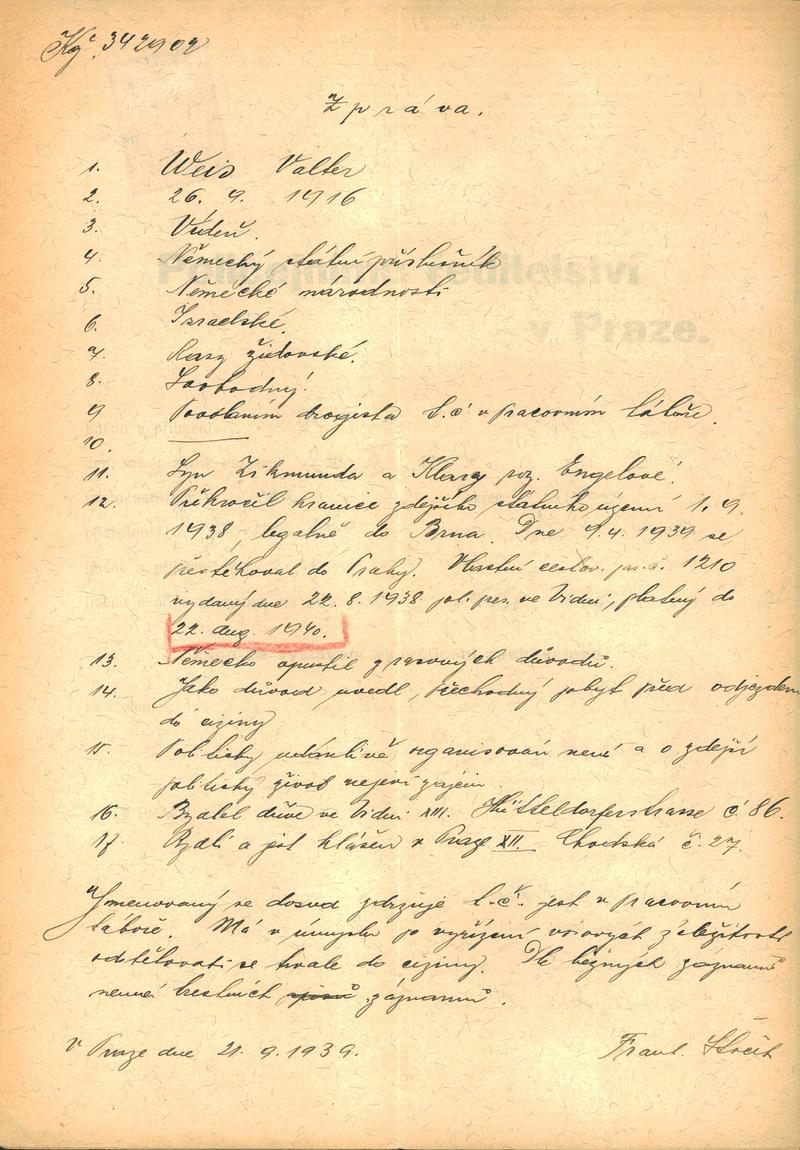 Zpráva.
1. Weis Valter
2. 26. 9. 1916
3. Vídeň.
4. Německý státní příslušník
5. Německé národnosti
6. Israelské.
7. Rasy židovské.
8. Svobodný.
9. Povoláním drogista t.č. v pracovním táboře.
10.
11. Syn Zikmunda a Klary roz. Engelové.
12. Překročil hranice zdejšího státního území 1.9.
1938, legálně do Brna. Dne 9.4. 1939 se
přestěhoval do Prahy. Vlastní cestov. pas č. 1210
vydaný dne 22. 8. 1938 pol. pres. ve Vídni, platný do
22. aug. 1940.
13. Německo opustil z rasových důvodů.
14. Jako důvod uvedl, přechodný pobyt před odjezdem
do ciziny
15. Politicky organisován není a o zdejší
politický život nejeví zájem.
16. Bydlel dříve ve Vídni XIII. Hütteldorferstrasse č. 86.
17. Bydlí a jest hlášen v Praze XII. Chodská č. 27.
Jmenovaný se dosud zdržuje t.č. jest v pracovním
táboře. Má v úmyslu po vyřízení záležitostí
odstěhovati se trvale do ciziny. Dle běžných záznamů
nemá trestních záznamů.
V Praze dne 21. 9. 1939. Frant.
Policejní ředitelství
v Praze.